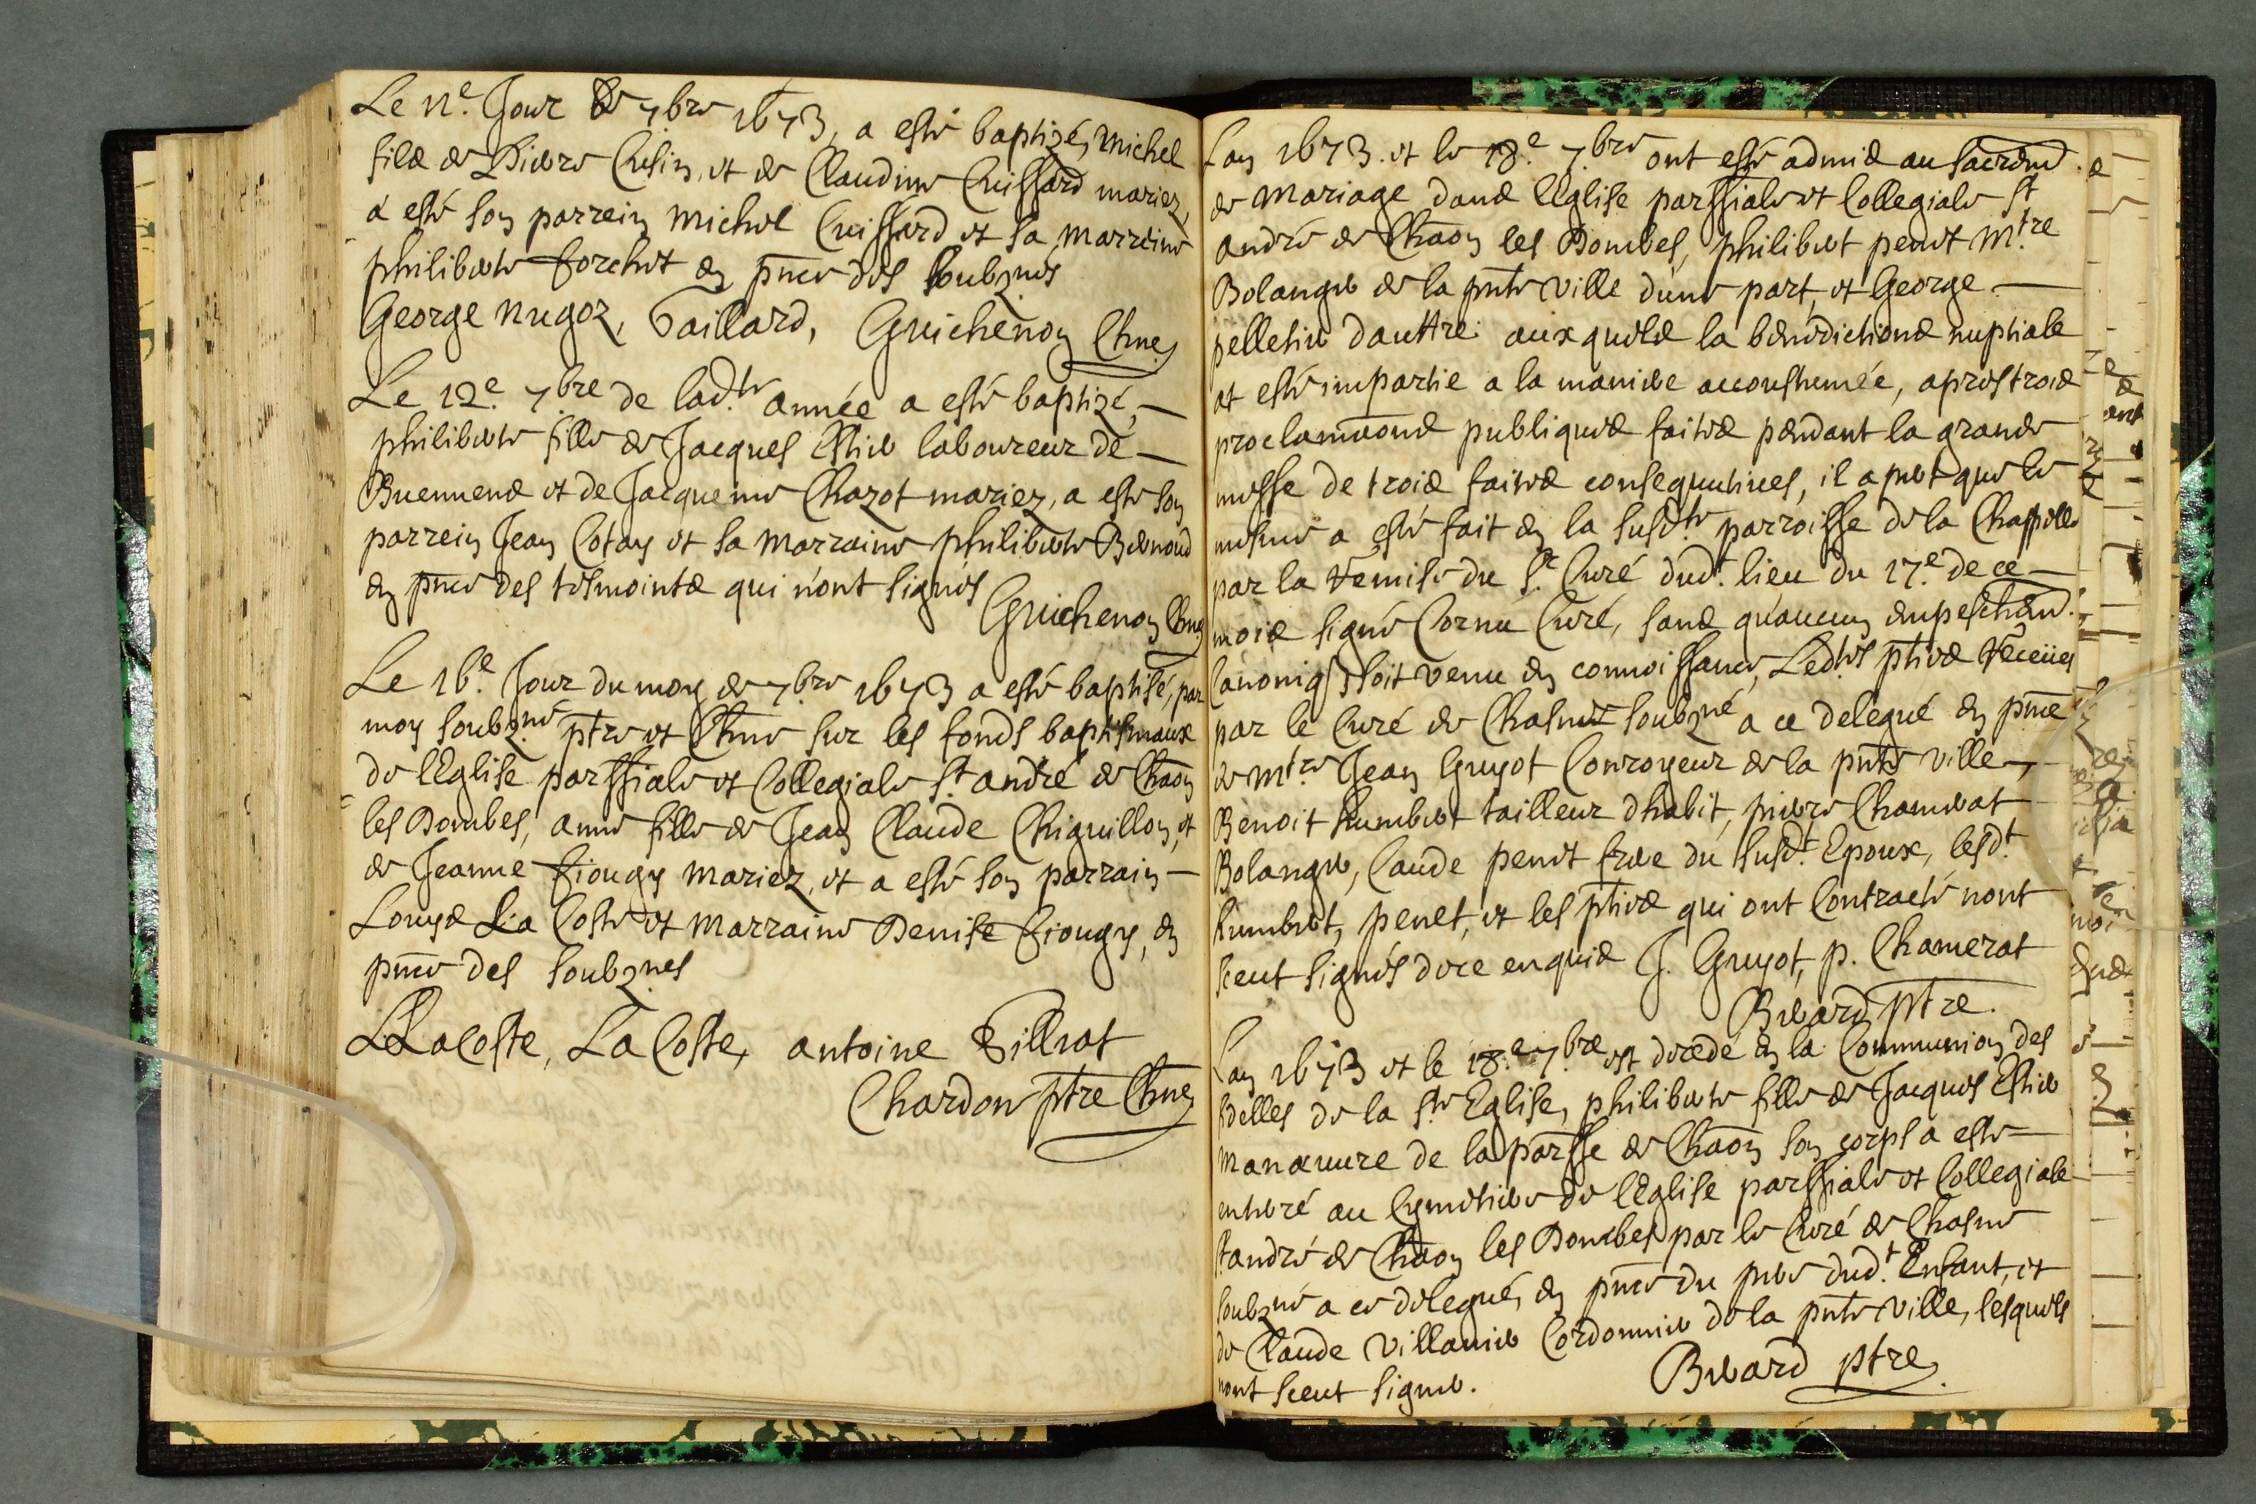 Le 11e. Jour de 7bre 1673, a esté baptizé, Michel
filz de Pierre Cusin, et de Claudine Cuissard mariez,
a esté son parrein Michel Cuissard et sa marreine
philiberte forchet en pnce des soubznes
George nugoz, Gaillard, Guichenon Chne
Le 12e. 7bre de ladte année a esté baptizé,
philiberte fille de Jacques Estier laboureur de
Buenend et de Jacqueme Chazot mariez, a esté son
parrein Jean Cotay et sa Marraine philiberte Benoud
en pnce des tesmointz qui n'ont signés
Guichenon Chne
Le 16e Jour du moy de 7bre 1673 a esté baptisé, par
moy soubzné ptre et Chne sur les fonds baptismaux
de l'Eglise parssiale et Collegiale St. andré de Chaon
les Dombes, anne fille de Jean Claude Chiquillon, et
de Jeanne fiougy mariez, et a esté son parrain
Louys La Coste et Marraine Denise fiougy, en
pnce des soubznes
LLacoste, La Coste, antoine
Chardon ptre Chne
Lan 1673. et le 18e. 7bre ont esté admis au sacremt.
de Mariage dans l'Eglise parssiale et Collegiale St
andré de Chaon les Dombes, philibert penet Mtre
Bolanger de la pnte ville d'une part, et George
pelletier d'auttre: auxquels la benedictions nuptiale
at esté impartie a la maniere accoustumée, apres trois
proclamaons publiques faites pendant la grande
messe de trois faites consequutives, il apert que le
mesme a esté fait en la susdte parroisse de la Chappelle
par la remise du Sr Curé dudt. lieu du 17e. de ce
mois signé Cornu Curé, sans qu'aucun empeschemt.
Canoniq soit venu en connoissance, Ledtes pties receües
par le Curé de Chasnes soubzné a ce delegué en pnce
de mtre Jean Guyot Conroyeur de la pnte ville,
Benoit humbert tailleur d'habit, pierre Chamerat
Bolanger, Caude penet frere du susdt. Epoux, lesdt.
humbert, penet, et les pties qui ont Contracté nont
sceut signés de ce enquis J. Guyot, p. Chamerat
Berard Ptre.
Lan 1673 et le 18e. 7bre est decedé en la Communion des
fidelles de la Ste Eglise, philiberte fille de Jacques Estier
manœuure de la parsse de Chaon son corps a esté
enterré au Cymetiere de l'Eglise parssiale et Collegiale
St andré de Chaon les Dombes par le Curé de Chasne
soubzné a ce delegué, en pnce du pere dudt. Enfant, et
de Claude Villanier Cordonnier de la pnte Ville, lesquels
nont sceut signer. Berard ptre